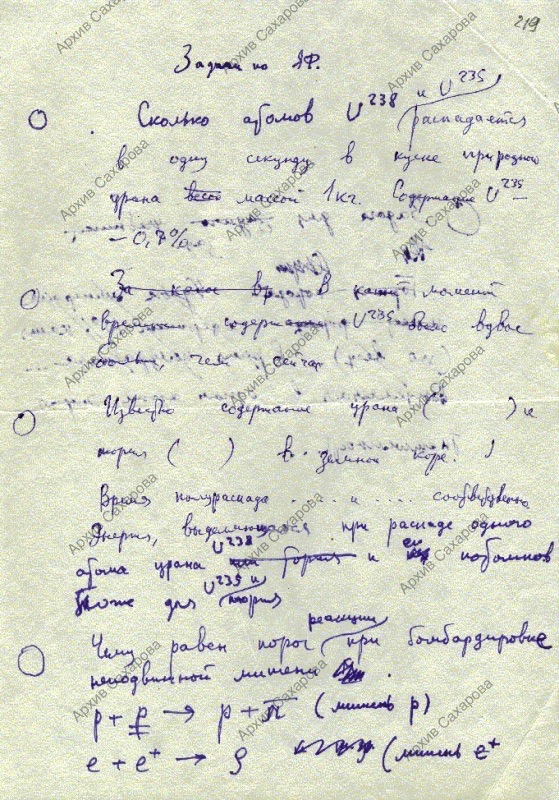 219
Задачи по ЯФ.
Сколько атомов U²³⁸ и U²³⁵ распадается
в одну секунду в куске природного
урана весом массой 1 кг. Содержание U²³⁵ –
– 0,7%
За какое в в какой момент
времени содержание U²³⁵ было вдвое
больше, чем сейчас
Известно содержание урана ( ) и
тория ( ) в земной коре.
Время полураспада .... и .... соответственно
Энергия, выделяющаяся при распаде одного
атома урана U²³⁸ или тория и её потомков
тоже для U²³⁵ и тория
Чему равен порог реакции при бомбардировке
неподвижной мишени
p + p → p + π (мишень p)
e + e⁺ → ρ (мишень e⁺
Архив Сахарова